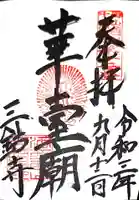 奉拝
令和三年
九月十二日
華臺廟
三鈷寺